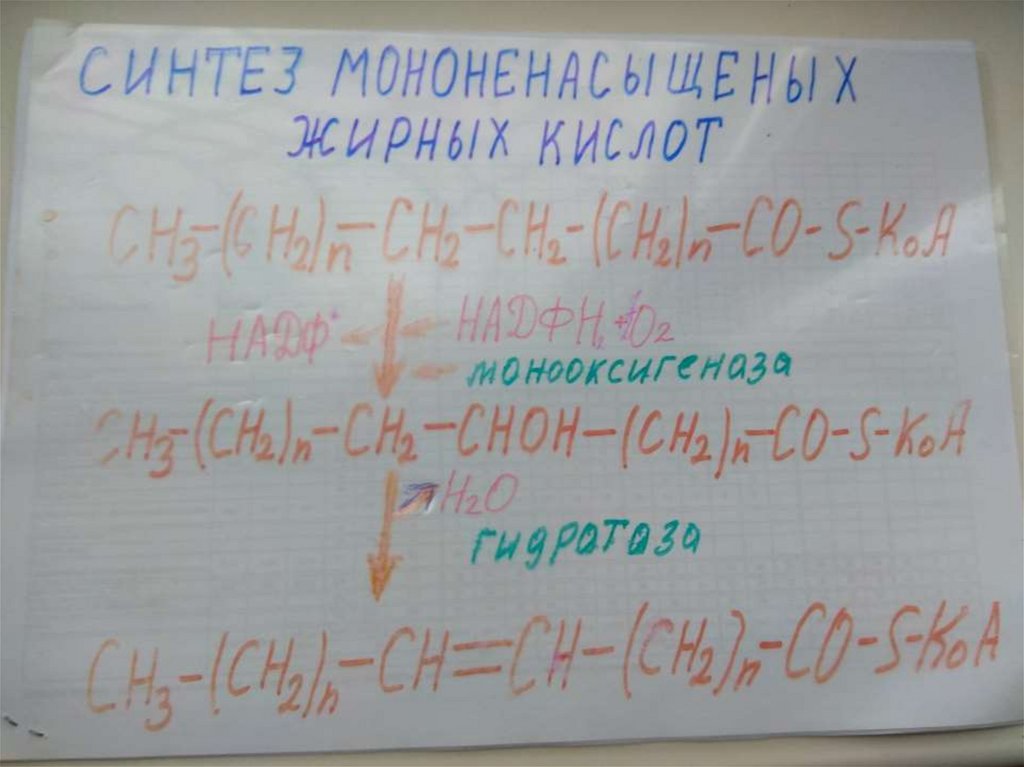 СИНТЕЗ МОНОНЕНАСЫЩЕНЫХ
ЖИРНЫХ КИСЛОТ
CH3-(CH2)n-CH2-CH2-(CH2)n-CO-S-KoA
НАДФ+ НАДФН2+O2
монооксигеназа
CH3-(CH2)n-CH2-CHOH-(CH2)n-CO-S-KoA
H2O
гидратаза
CH3-(CH2)n-CH=CH-(CH2)n-CO-S-KoA